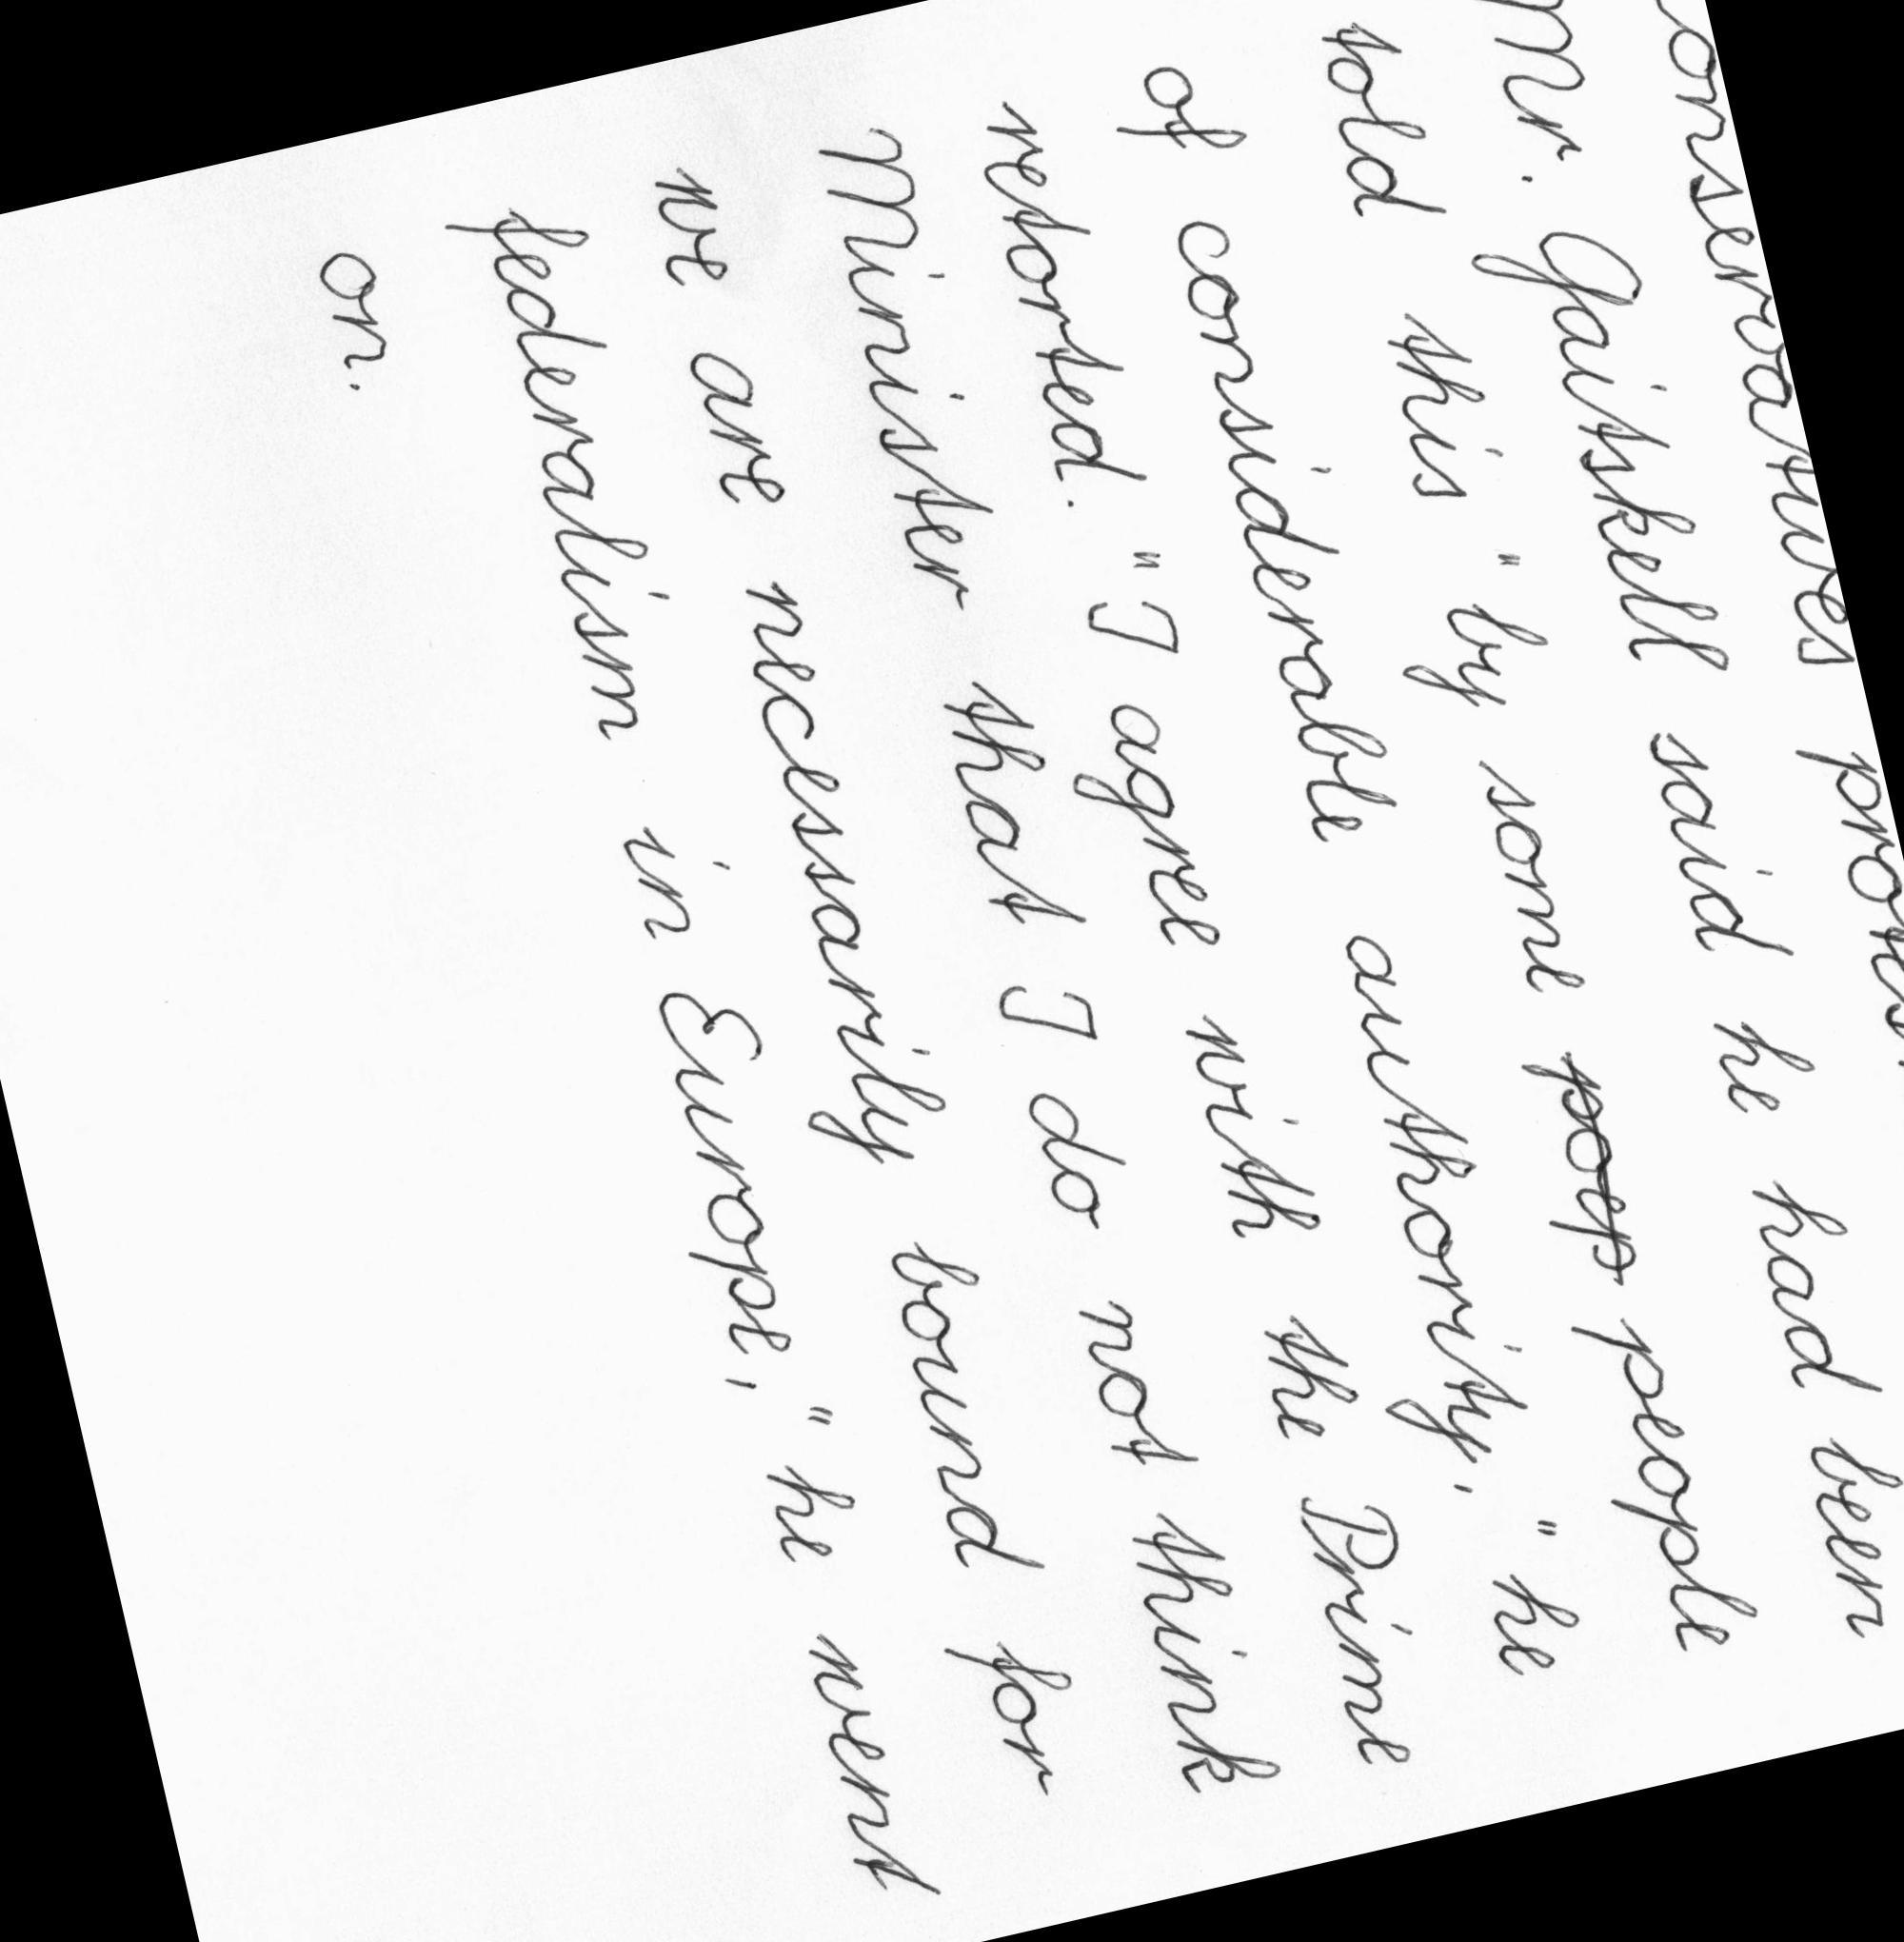 Conservatives
Mr. Gaitskell said he had been
told this " by some people
of considerable authority, " he
retorted. " I agree with the Prime
Minister that I do not think
we are necessarily bound for
federalism in Europe, " he went
on.